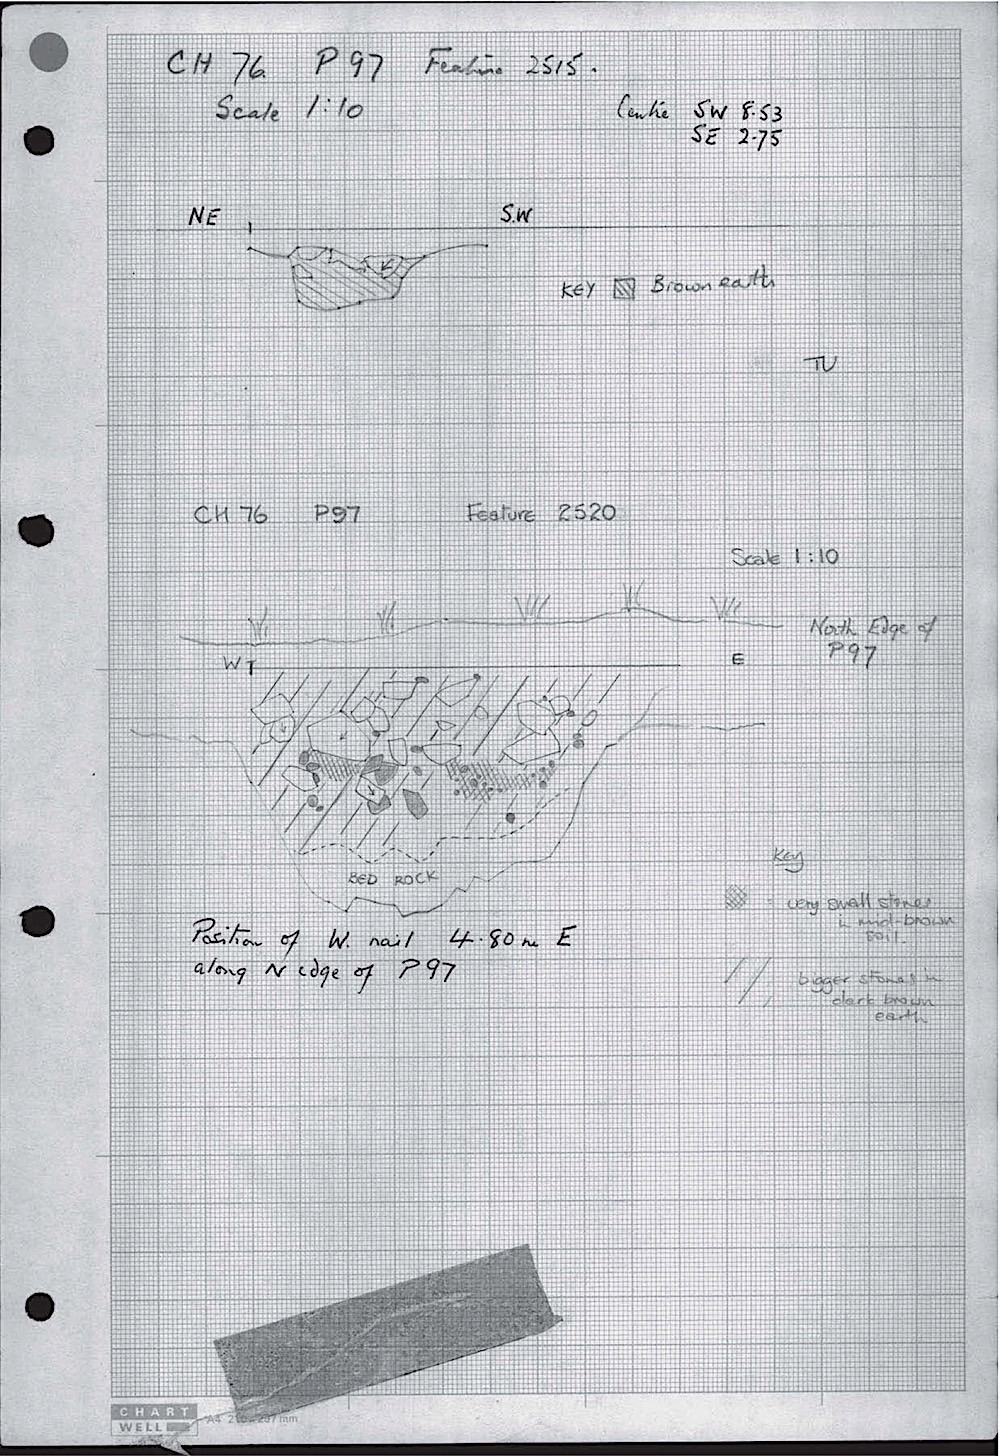 CH 76 P 97 Feature 2515.
Scale 1:10
Centre SW 8.53
SE 2.75
NE
S.W
KEY Brown earth
TU
CH 76 P97 Feature 2520
Scale 1:10
North Edge of
P97
W
E
BED ROCK
Key
very small stones
in mid-brown
soil.
Position of W. nail 4.80m E
along N edge of P97
bigger stones in
dark brown
earth
CHART
WELL
A4
mm